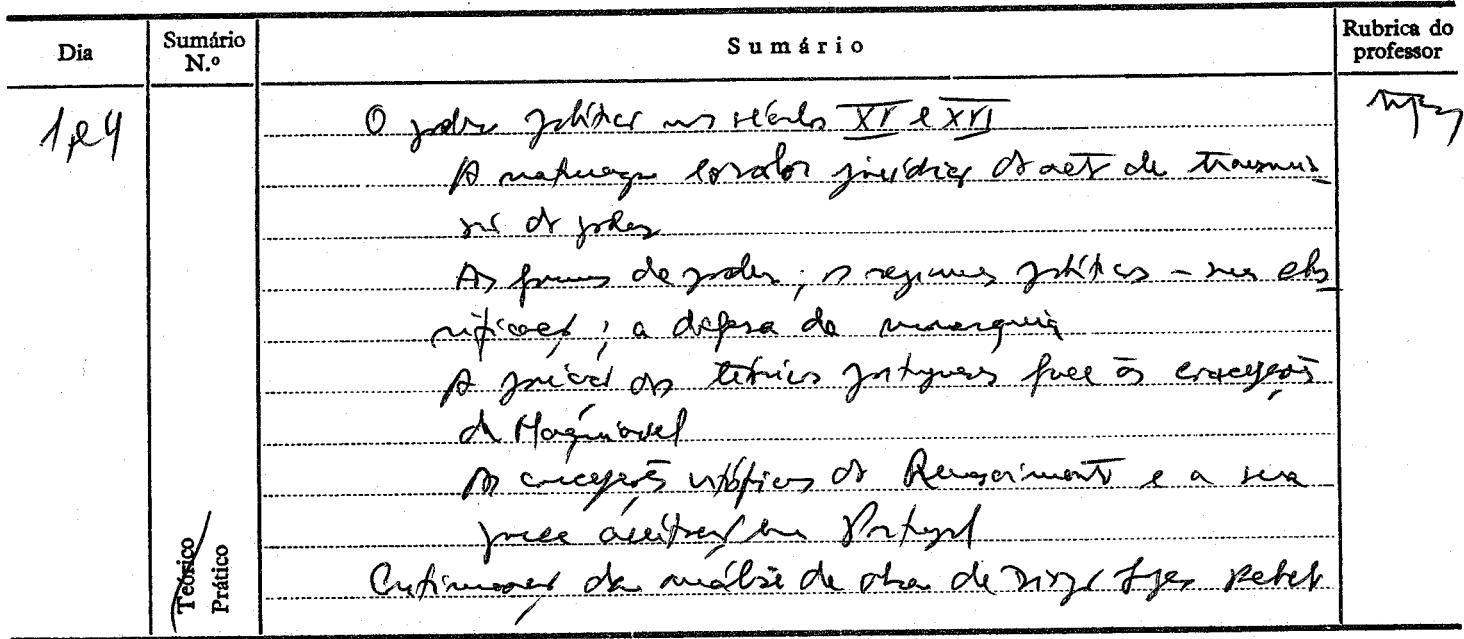 Dia
Sumário N.º
Sumário
Rubrica do professor
1/4
O poder político nos séculos XV e XVI
A natureza e o valor jurídico do acto de transmis
são do poder
As formas de poder; os regimes políticos - sua clas
sificação; a defesa da monarquia
A posição dos teóricos portugueses face às concepções
de Maquiavel
As concepções utópicas do Renascimento e a sua
pouca aceitação em Portugal
Continuação da análise da obra de Diogo Lopes Rebelo
Teórico
Prático